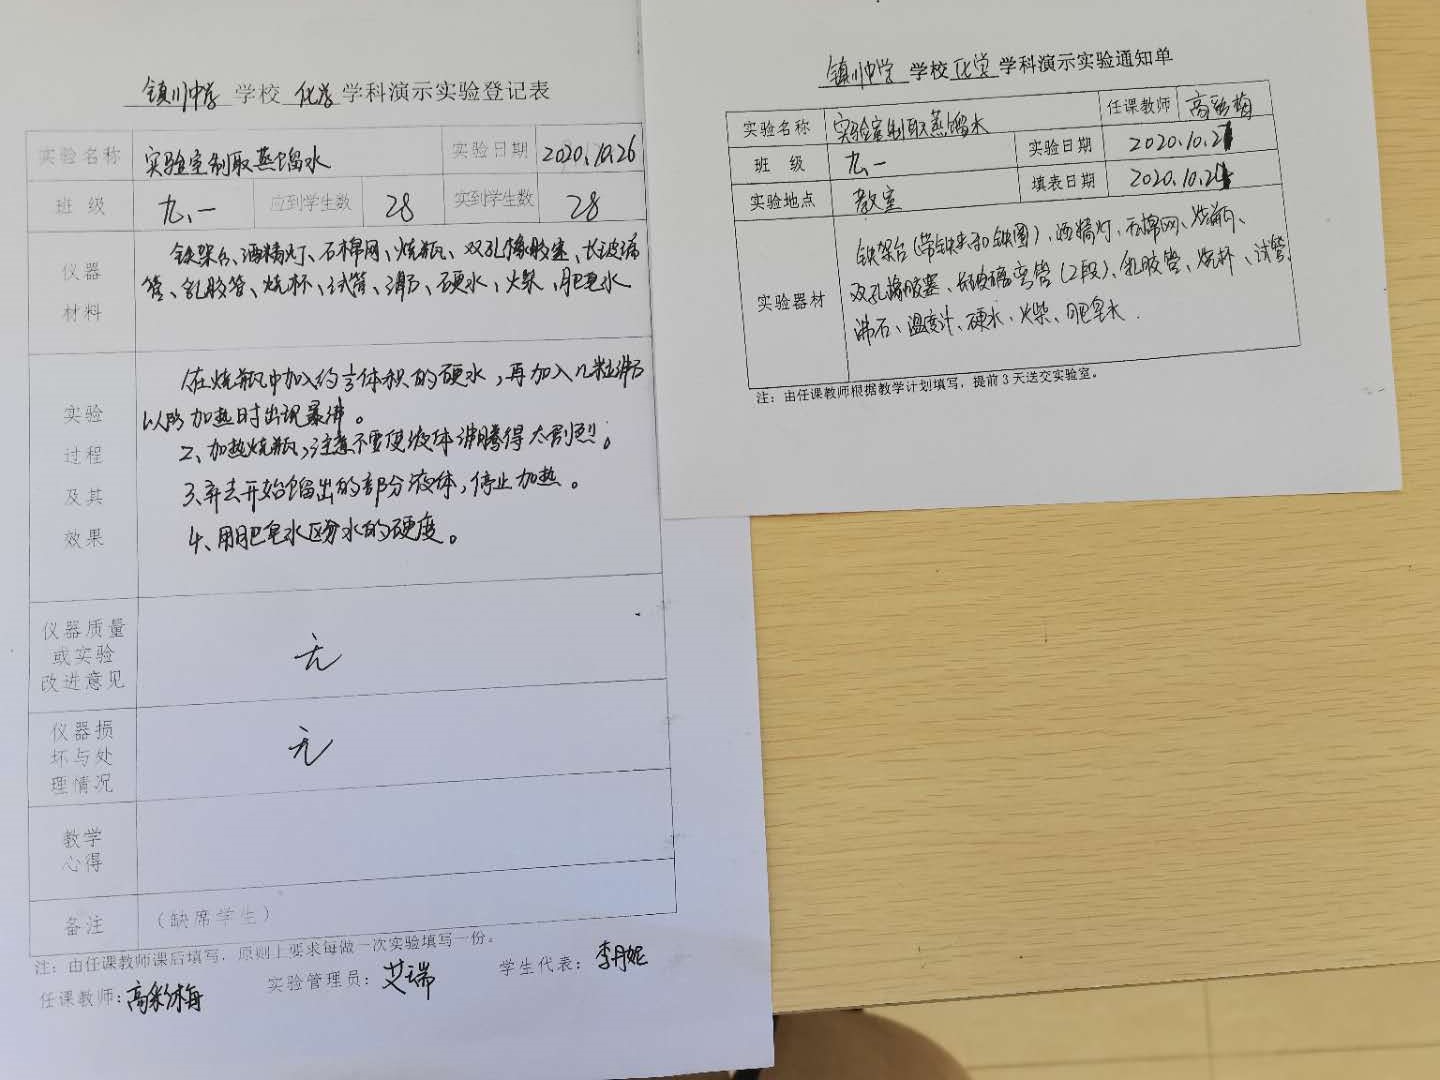 镇川中学 学校 化学 学科演示实验登记表
实验名称 实验室制取蒸馏水 实验日期 2020.10.26
班 级 九.一 应到学生数 28 实到学生数 28
仪器材料
铁架台、酒精灯、石棉网、烧瓶、双孔橡胶塞、长玻璃
管、乳胶管、烧杯、试管、沸石、硬水、火柴、肥皂水
实验过程及其效果
1在烧瓶中加入约1/3体积的硬水，再加入几粒沸石
以防加热时出现暴沸。
2、加热烧瓶，注意不要使液体沸腾得太剧烈。
3、弃去开始馏出的部分液体，停止加热。
4、用肥皂水区分水的硬度。
仪器质量或实验改进意见 无
仪器损坏与处理情况 无
教学心得
备注 （缺席学生）
注：由任课教师课后填写，原则上要求每做一次实验填写一份。
任课教师：高彩梅 实验管理员：艾瑞 学生代表：李丹妮
镇川中学 学校 化学 学科演示实验通知单
实验名称 实验室制取蒸馏水 任课教师 高彩梅
班 级 九.一 实验日期 2020.10.2
实验地点 教室 填表日期 2020.10.2
实验器材
铁架台(带铁夹和铁圈)、酒精灯、石棉网、烧瓶、
双孔橡胶塞、长玻璃弯管(2段)、乳胶管、烧杯、试管
沸石、温度计、硬水、火柴、肥皂水.
注：由任课教师根据教学计划填写，提前3天送交实验室。